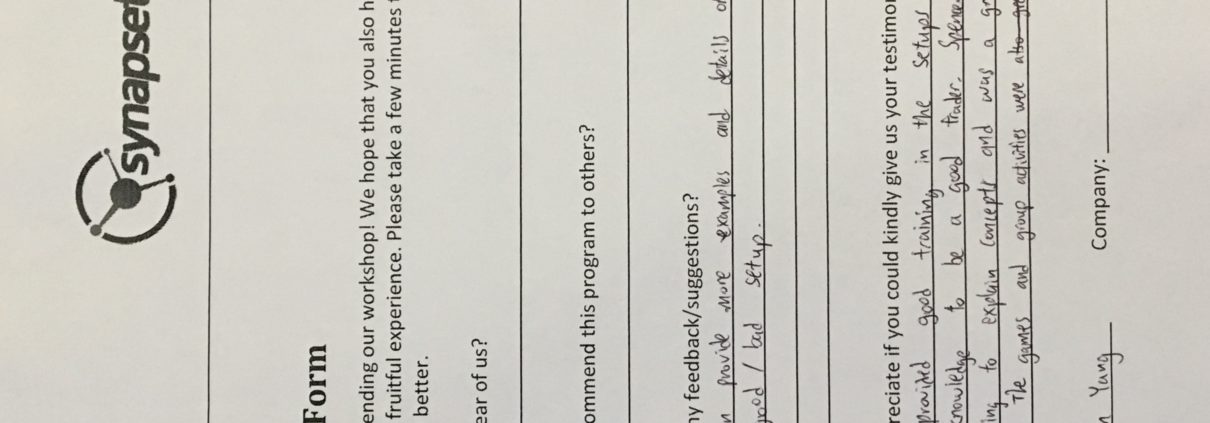 synapset
Form
ending our workshop! We hope that you also h
fruitful experience. Please take a few minutes
better.
ear of us?
ommend this program to others?
ny feedback/suggestions?
n provide more examples and details of
good / bad setup.
reciate if you could kindly give us your testimon
provided good training in the setups
knowledge to be a good trader. Spend
ing to explain concepts and was a gr
The games and group activities were also gre
Yang Company: